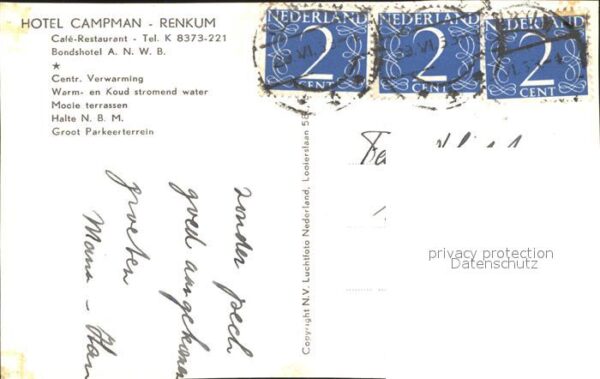 HOTEL CAMPMAN - RENKUM
Café-Restaurant - Tel. K 8373-221
Bondshotel A. N. W. B.
★
Centr. Verwarming
Warm- en Koud stromend water
Mooie terrassen
Halte N. B. M.
Groot Parkeerterrein
NEDERLAND
2
CENT
NEDERLAND
2
CENT
NEDERLAND
2
CENT
zonder pech
goed aangekomen
groeten
Copyright N.V. Luchtfoto Nederland, Looierslaan 58
privacy protection
Datenschutz